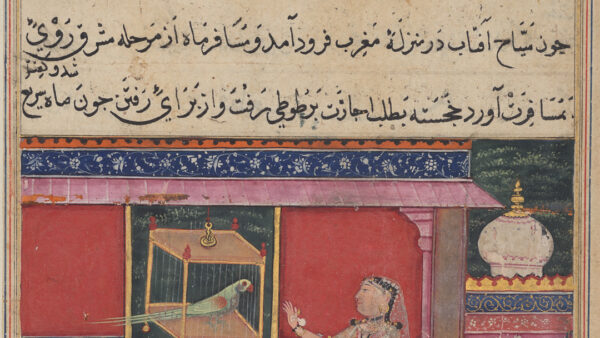 چون سیاح آفتاب در منزلهٔ مغرب فرود آمد و مسافر ماه از مرحله مشرق روی
بمسافرت آورد خجسته بطلب اجازت بر طوطی رفت و از برای رفتن چون ماه سریع